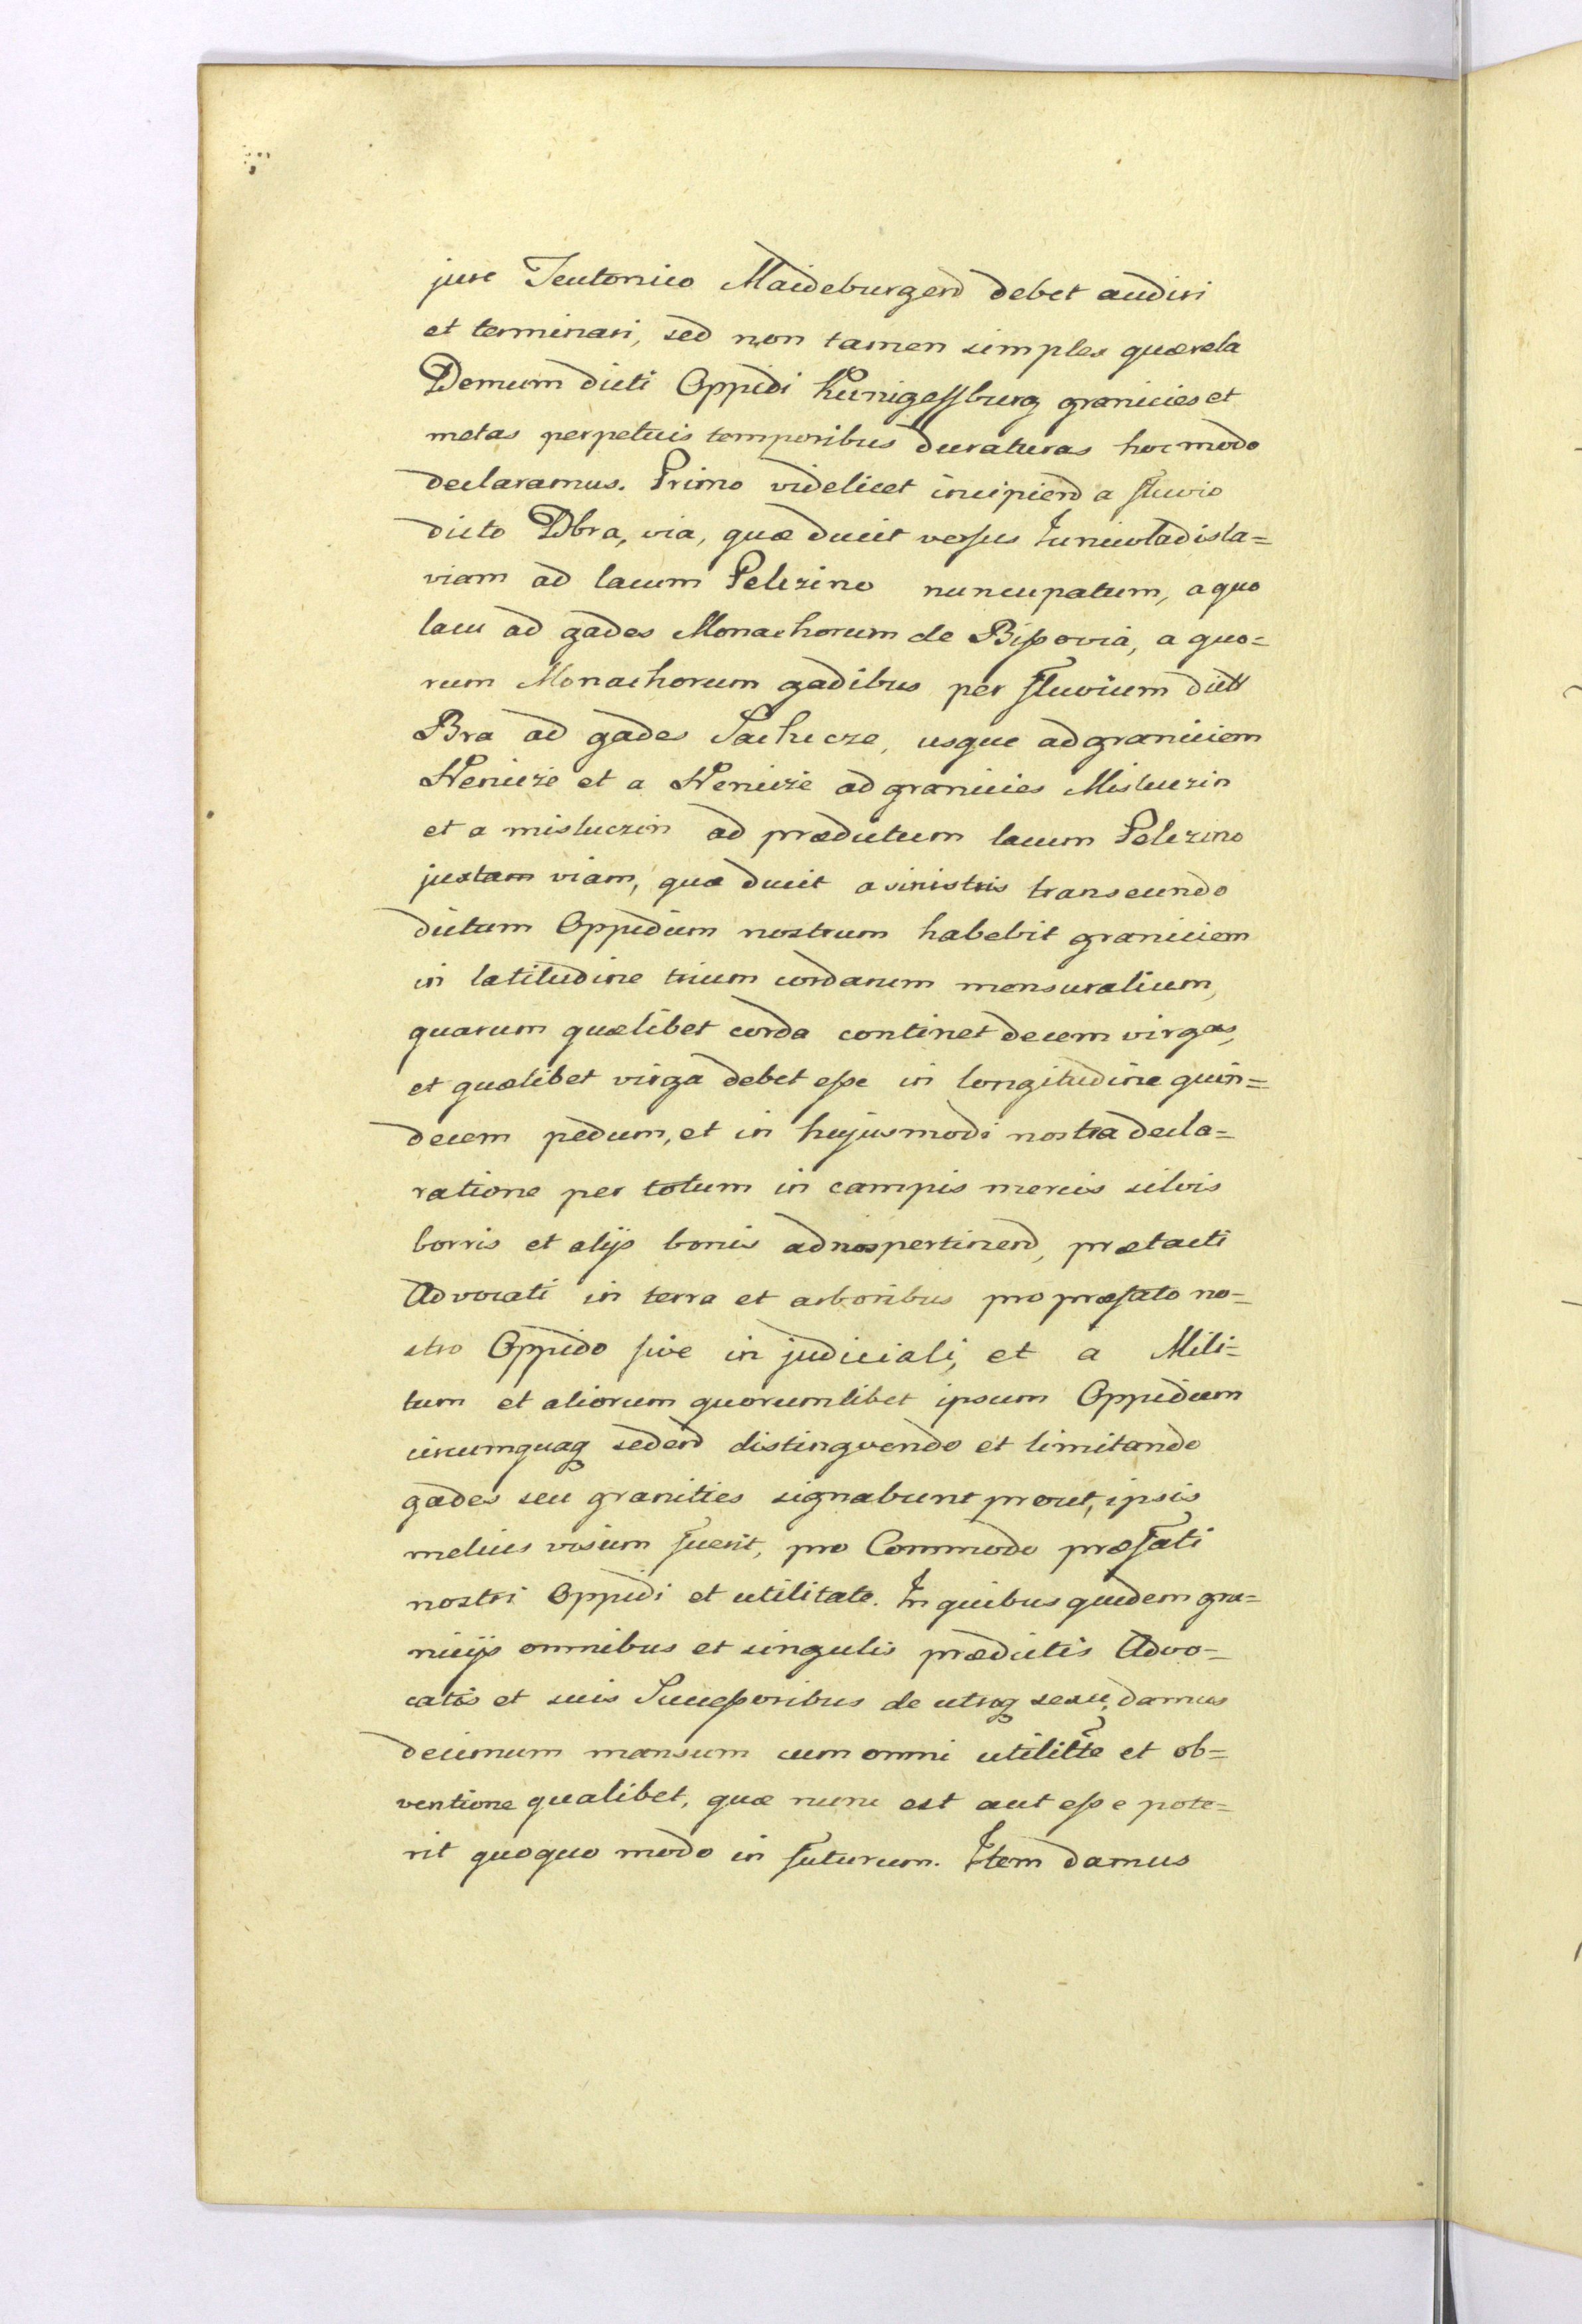 jure Teutonico Maideburgend debet audiri
et terminari, sed non tamen simplex quærela
Demum dicti Oppidi Kunigessburg granicies et
metas perpetuis temporibus duraturas hoc modo
declaramus. Primo videlicet incipiend a fluvio
dicto Dbra, via, quæ ducit versus Iuniwladisla=
viam ad lacum Pelczino nuncupatum, a quo
lacu ad gades Monachorum de Bissovia, a quo=
rum Monachorum gadibus per fluvium dictt
Bra ad gades Sachcze, usque ad graniciem
Nenicze et a Nenicze ad granicies Misluczin
et a misluczin ad prædictum lacum Pelczino
juxtam viam, quæ ducit a sinistris transeundo
dictum Oppidum nostrum habebit graniciem
in latitudine trium cordarum mensuralium,
quarum quælibet corda continet decem virgas,
et quælibet virga debet esse in longitudine quin=
decem pedum, et in hujusmodi nostra decla=
ratione per totum in campis mericis silvis
borris et alijs bonis ad nos pertinend, prætacti
Advocati in terra et arboribus pro præfato no=
stro Oppido sive in judiciali, et a Mili=
tum et aliorum quorumlibet ipsum Oppidum
circumquaq sedend distingvendo et limitando
gades seu granities signabunt prout, ipsis
melius visum fuerit, pro Commodo præfati
nostri Oppidi et utilitate. In quibus quidem gra=
nicijs omnibus et singulis prædictis Advo=
catis et suis Successoribus de utroq sexu, damus
decimum mansum cum omni utilitte et ob=
ventione qualibet, quæ nunc est aut esse pote=
rit quoquo modo in futurum. Item damus